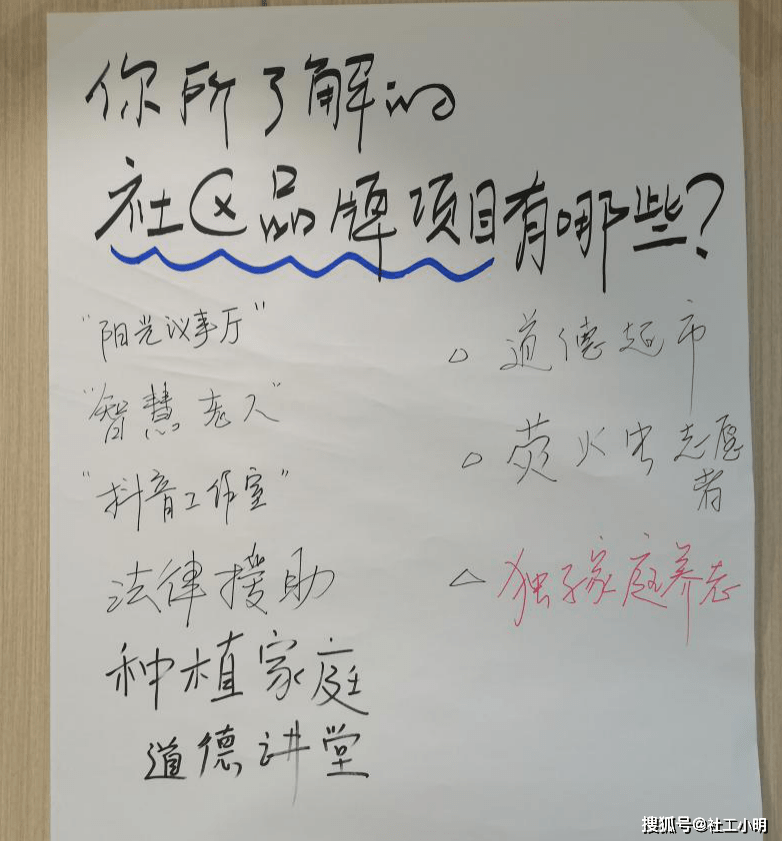 你所了解的
社区品牌项目有哪些?
"阳光议事厅"
"智慧老人"
"抖音工作室"
法律援助
种植家庭
道德讲堂
△ 道德超市
△ 荧火虫志愿者
△ 独子家庭养老
搜狐号@社工小明